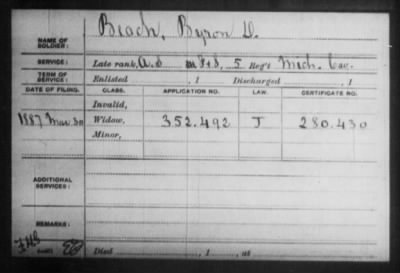 NAME OF SOLDIER: Beach, Byron D.
SERVICE: Late rank, A.S. F&S, 5 Reg't Mich. Cav.
TERM OF SERVICE: Enlisted , 1 Discharged , 1
DATE OF FILING. CLASS. APPLICATION NO. LAW. CERTIFICATE NO.
Invalid,
1887 Mar 30 Widow, 352.492 J 280.430
Minor,
ADDITIONAL SERVICES:
REMARKS:
Died , 1 , at